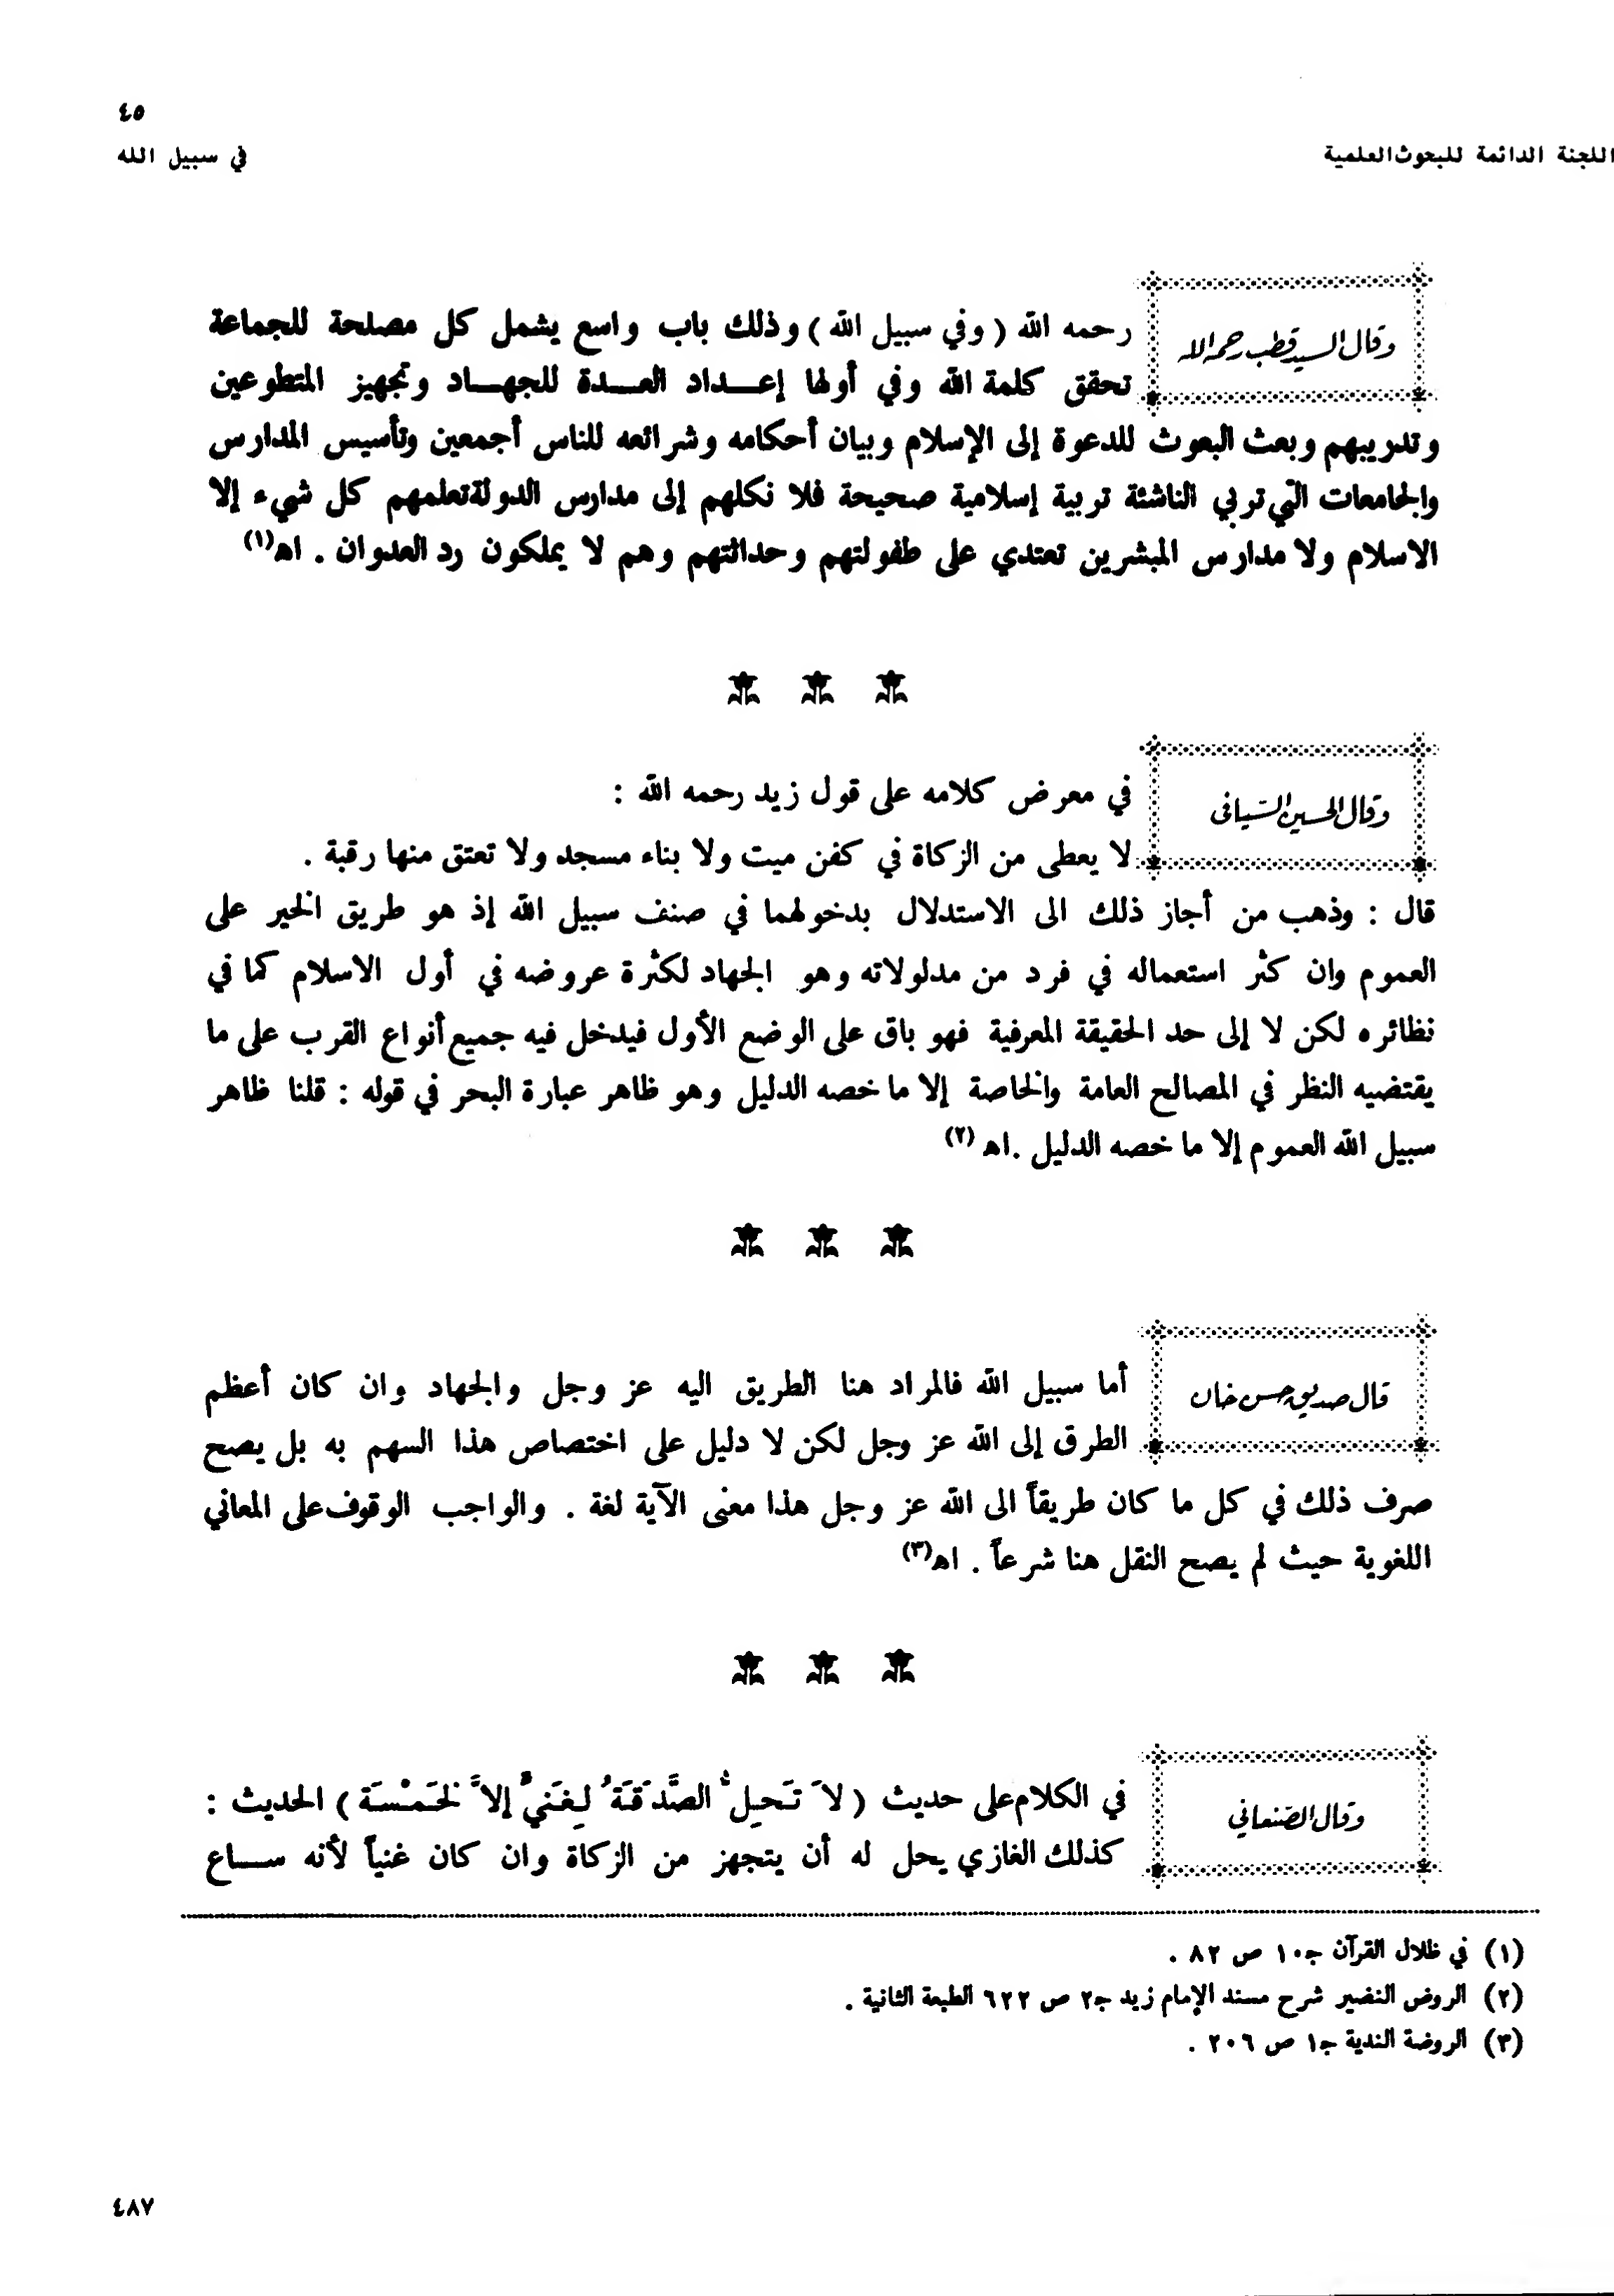 ٤٥
اللجنة الدائمة للبحوث العلمية
في سبيل الله
وقال السيد قطب رحمه الله
رحمه الله ( وفي سبيل الله ) وذلك باب واسع يشمل كل مصلحة للجماعة
تحقق كلمة الله وفي أولها إعـــداد العـــدة للجهـــاد وتجهيز المتطوعين
وتدريبهم وبعث البعوث للدعوة إلى الإسلام وبيان أحكامه وشرائعه للناس أجمعين وتأسيس المدارس
والجامعات التي تربي الناشئة تربية إسلامية صحيحة فلا نكلهم إلى مدارس الدولة تعلمهم كل شيء إلا
الاسلام ولا مدارس المبشرين تعتدي على طفولتهم وحداثتهم وهم لا يملكون رد العدوان . اهـ(١)
وقال الحسين السياني
في معرض كلامه على قول زيد رحمه الله :
لا يعطى من الزكاة في كفن ميت ولا بناء مسجد ولا تعتق منها رقبة .
قال : وذهب من أجاز ذلك الى الاستدلال بدخولهما في صنف سبيل الله إذ هو طريق الخير على
العموم وان كثر استعماله في فرد من مدلولاته وهو الجهاد لكثرة عروضه في أول الاسلام كما في
نظائره لكن لا إلى حد الحقيقة المعرفية فهو باق على الوضع الأول فيدخل فيه جميع أنواع القرب على ما
يقتضيه النظر في المصالح العامة والخاصة إلا ما خصه الدليل وهو ظاهر عبارة البحر في قوله : قلنا ظاهر
سبيل الله العموم إلا ما خصه الدليل .اهـ (٢)
قال صديق حسن خان
أما سبيل الله فالمراد هنا الطريق اليه عز وجل والجهاد وان كان أعظم
الطرق إلى الله عز وجل لكن لا دليل على اختصاص هذا السهم به بل يصح
صرف ذلك في كل ما كان طريقاً الى الله عز وجل هذا معنى الآية لغة . والواجب الوقوف على المعاني
اللغوية حيث لم يصح النقل هنا شرعاً . اهـ(٣)
وقال الصنعاني
في الكلام على حديث ( لاَ تَحِلُّ الصَّدَقَةُ لِغَنيٍّ إلاَّ لخَمْسَة ) الحديث :
كذلك الغازي يحل له أن يتجهز من الزكاة وان كان غنياً لأنه ســـاع
(١) في ظلال القرآن جـ١٠ ص ٨٢ .
(٢) الروض النضير شرح مسند الإمام زيد جـ٢ ص ٦٢٢ الطبعة الثانية .
(٣) الروضة الندية جـ١ ص ٢٠٦ .
٤٨٧